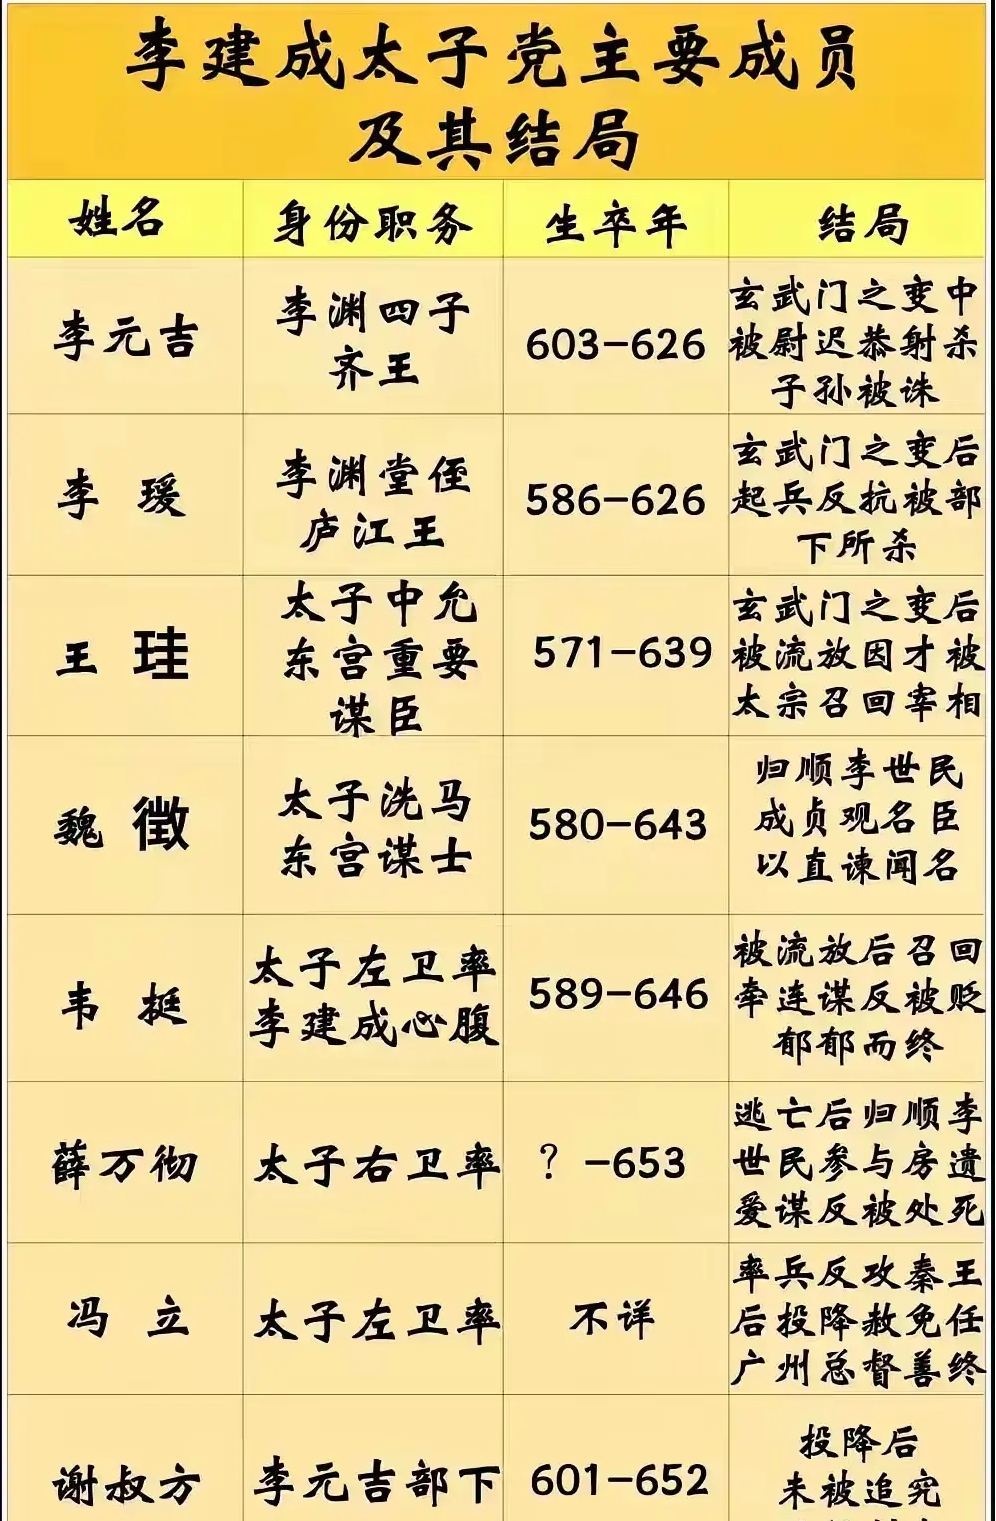 李建成太子党主要成员
及其结局
姓名
身份职务
生卒年
结局
李元吉
李渊四子
齐王
603-626
玄武门之变中
被尉迟恭射杀
子孙被诛
李 瑗
李渊堂侄
庐江王
586-626
玄武门之变后
起兵反抗被部
下所杀
王 珪
太子中允
东宫重要
谋臣
571-639
玄武门之变后
被流放因才被
太宗召回宰相
魏 徵
太子洗马
东宫谋士
580-643
归顺李世民
成贞观名臣
以直谏闻名
韦 挺
太子左卫率
李建成心腹
589-646
被流放后召回
牵连谋反被贬
郁郁而终
薛万彻
太子右卫率
？-653
逃亡后归顺李
世民参与房遗
爱谋反被处死
冯 立
太子左卫率
不详
率兵反攻秦王
后投降赦免任
广州总督善终
谢叔方
李元吉部下
601-652
投降后
未被追究